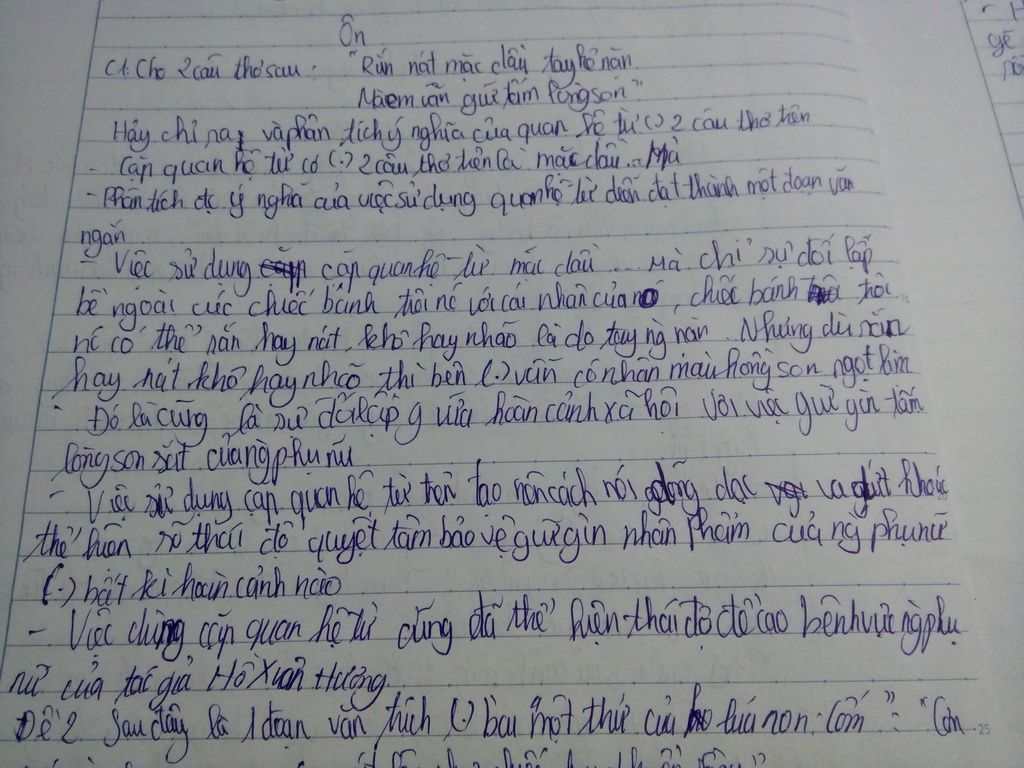 Ôn
C1: Cho 2 câu thơ sau: "Rắn nát mặc dầu tay kẻ nặn
Mà em vẫn giữ tấm lòng son"
Hãy chỉ ra và phân tích ý nghĩa của quan hệ từ (.) 2 câu thơ trên
- Cặp quan hệ từ có (.) 2 câu thơ trên là mặc dầu... Mà
- Phân tích đc ý nghĩa của việc sử dụng quan hệ từ diễn đạt thành một đoạn văn
ngắn
- Việc sử dụng cặp quan hệ từ mặc dầu ... mà chỉ sự đối lập
bề ngoài của chiếc bánh trôi nc với cái nhân của nó, chiếc bánh trôi
nc có thể rắn hay nát, khô hay nhão là do tay ng nặn. Nhưng dù rắn
hay nát khô hay nhão thì bên (.) vẫn có nhân màu hồng son ngọt lịm
- Đó là cũng là sự đối lập g vữa hoàn cảnh xã hội với việc giữ gìn tấm
lòng son sắt của ng phụ nữ
- Việc sử dụng cặp quan hệ từ trên tạo nên cách nói dõng dạc và dứt khoát
thể hiện rõ thái độ quyết tâm bảo vệ giữ gìn nhân phẩm của ng phụ nữ
(.) bất kì hoàn cảnh nào
- Việc dùng cặp quan hệ từ cũng đã thể hiện thái độ đề cao bênh vực ng phụ
nữ của tác giả Hồ Xuân Hương
Đề 2 Sau đây là 1 đoạn văn trích (.) bài "một thứ của lúa non: Cốm": "Cốm
25